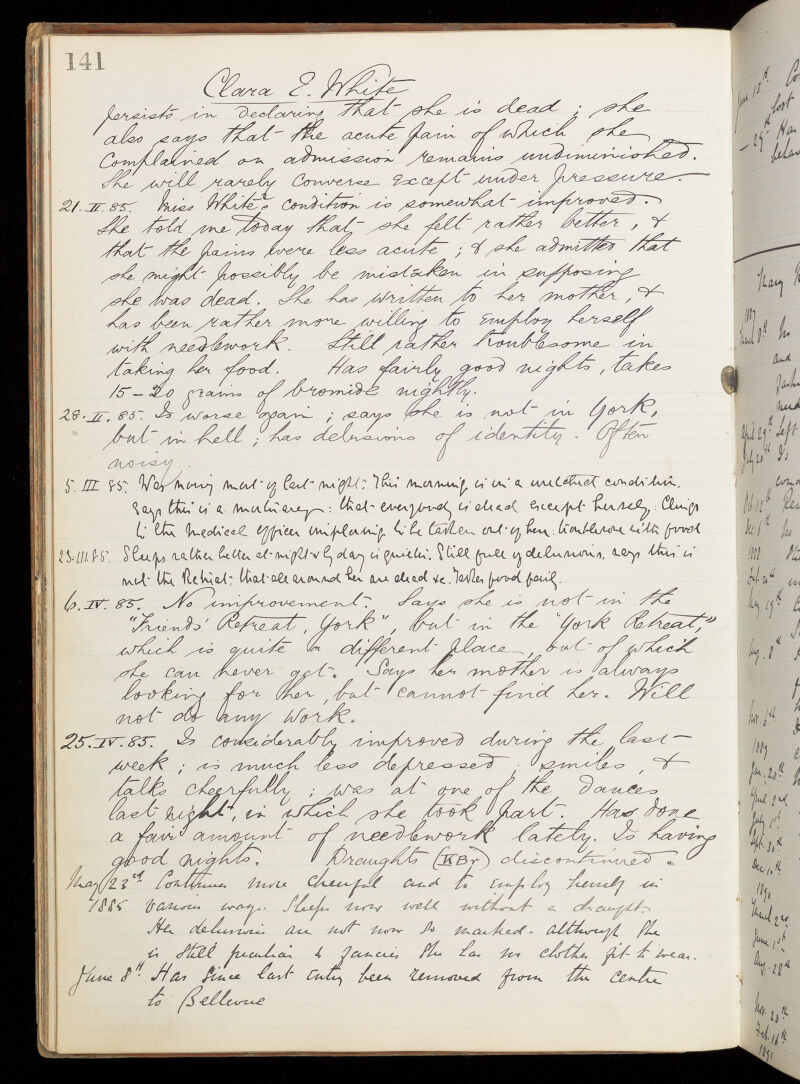 141
Clara E. White
persists in declaring that she is dead; she
also says that the acute pain of which she
complained on admission remains undiminished.
She will rarely converse except under pressure.
21.II.85. Miss White's condition is somewhat improved.
She told me today that she felt rather better, &
that the pains were less acute; & she admitted that
she might possibly be mistaken in supposing
she was dead. She has written to her mother, &
has been rather more willing to employ herself
with needlework. Still rather troublesome in
taking her food. Has fairly good nights, takes
15-20 grains of bromide nightly.
28.II.85. Is worse again; says she is not in York,
but in hell; has delusions of identity. Often
noisy.
5.III.85. Was noisy most of last night. This morning is in a condition.
Says this is a : that everybody is dead except herself. Clings
to the medical officer imploring to be taken out of here. troublesome with food
23.III.85. Sleeps rather better at night & by day is quieter. Still full of delusions, says this is
not the Retreat: that all around her are dead &c. Takes food fairly.
6.IV.85. No improvement. Says she is not in the
"Friends' Retreat, York", but in the "York Retreat,"
which is quite a different place, out of which
she can never get. Says her mother is always
looking for her, but cannot find her. Will
not do any work.
25.IV.85. Is considerably improved during the last
week; is much less depressed; smiles, &
talks cheerfully; was at one of the dances
last night, in which she took part. Has done
a fair amount of needlework lately. Is having
good nights. Draughts (KBr) discontinued.
May 23rd Continues more cheerful and to employ herself in
1885 various ways. Sleeps now well without a draught.
Her delusions are not now so marked - although she
is still peculiar & fancies she has no clothes fit to wear.
June 8th Has since last entry been removed from the centre
to Bellevue
June 15th
lost
29th
behav
Mary
1887
March 8th
and
April 29th left
July 20th
Oct. 12th
Dec. 1st
1888
Feb. 20th
May 19th
Aug. 8th
Nov. 6th
1889
Jan. 20th
April 2nd
July 1st
Sept. 30th
Dec. 10th
1890
March 2nd
June 1st
Aug. 28th
Nov. 20th
Feb. 16th
1891